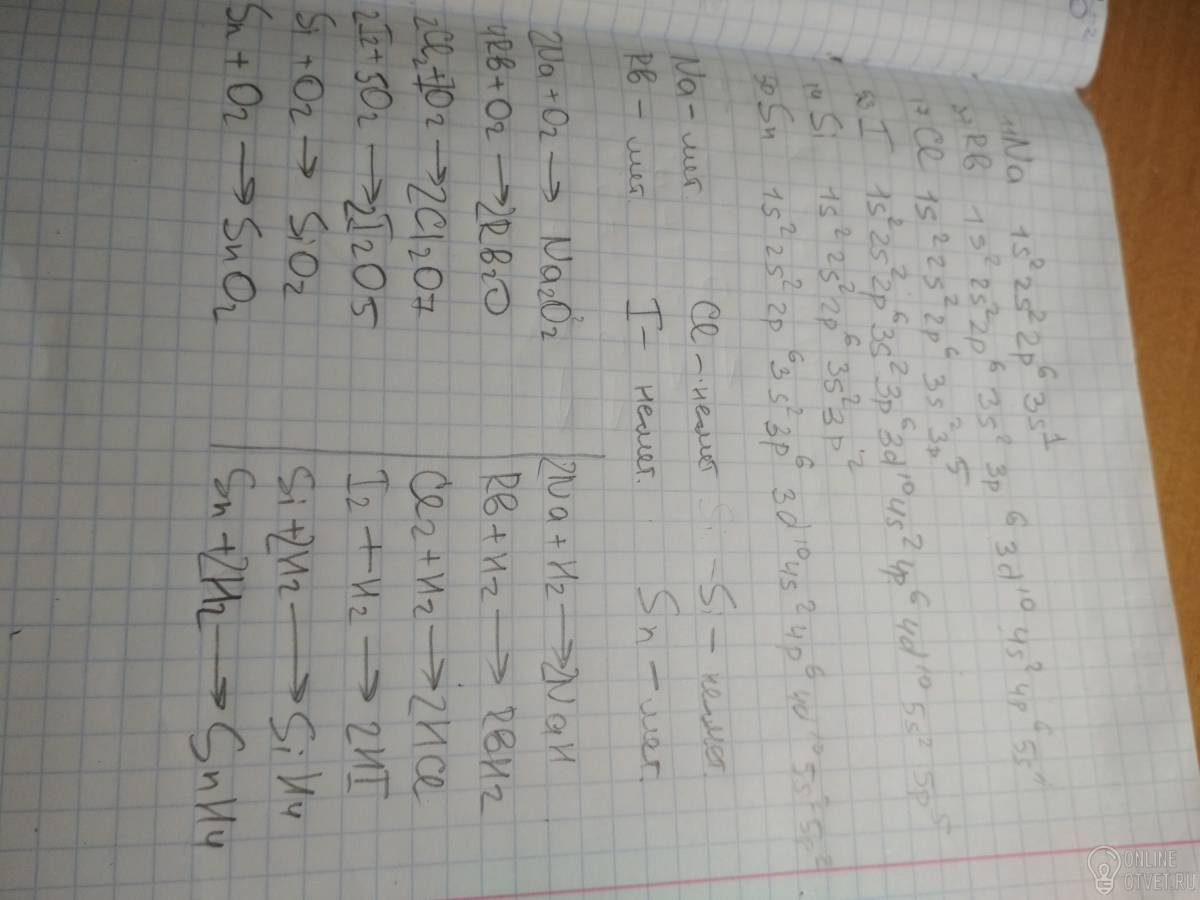 11Na 1s² 2s² 2p⁶ 3s¹
37Rb 1s² 2s² 2p⁶ 3s² 3p⁶ 3d¹⁰ 4s² 4p⁶ 5s¹
17Cl 1s² 2s² 2p⁶ 3s² 3p⁵
53I 1s² 2s² 2p⁶ 3s² 3p⁶ 3d¹⁰ 4s² 4p⁶ 4d¹⁰ 5s² 5p⁵
14Si 1s² 2s² 2p⁶ 3s² 3p²
50Sn 1s² 2s² 2p⁶ 3s² 3p⁶ 3d¹⁰ 4s² 4p⁶ 4d¹⁰ 5s² 5p²
Na - мет. Cl - немет Si - немет.
Rb - мет. I - немет. Sn - мет.
2Na + O2 → Na2O2 2Na + H2 → 2NaH
4Rb + O2 → 2Rb2O Rb + H2 → RbH2
2Cl2 + 7O2 → 2Cl2O7 Cl2 + H2 → 2HCl
2I2 + 5O2 → 2I2O5 I2 + H2 → 2HI
Si + O2 → SiO2 Si + 2H2 → SiH4
Sn + O2 → SnO2 Sn + 2H2 → SnH4
ONLINE
OTVET.RU